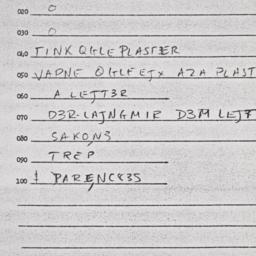 020 O
030 O
040 TINK QGLE PLASTER
050 VADNE QGLF EJX AZA PLAST
060 A LEJT3R
070 D3R-LAJNGMIR D3M LEJT
080 SAKONS
090 TREP
100 ‡ PARENC83S